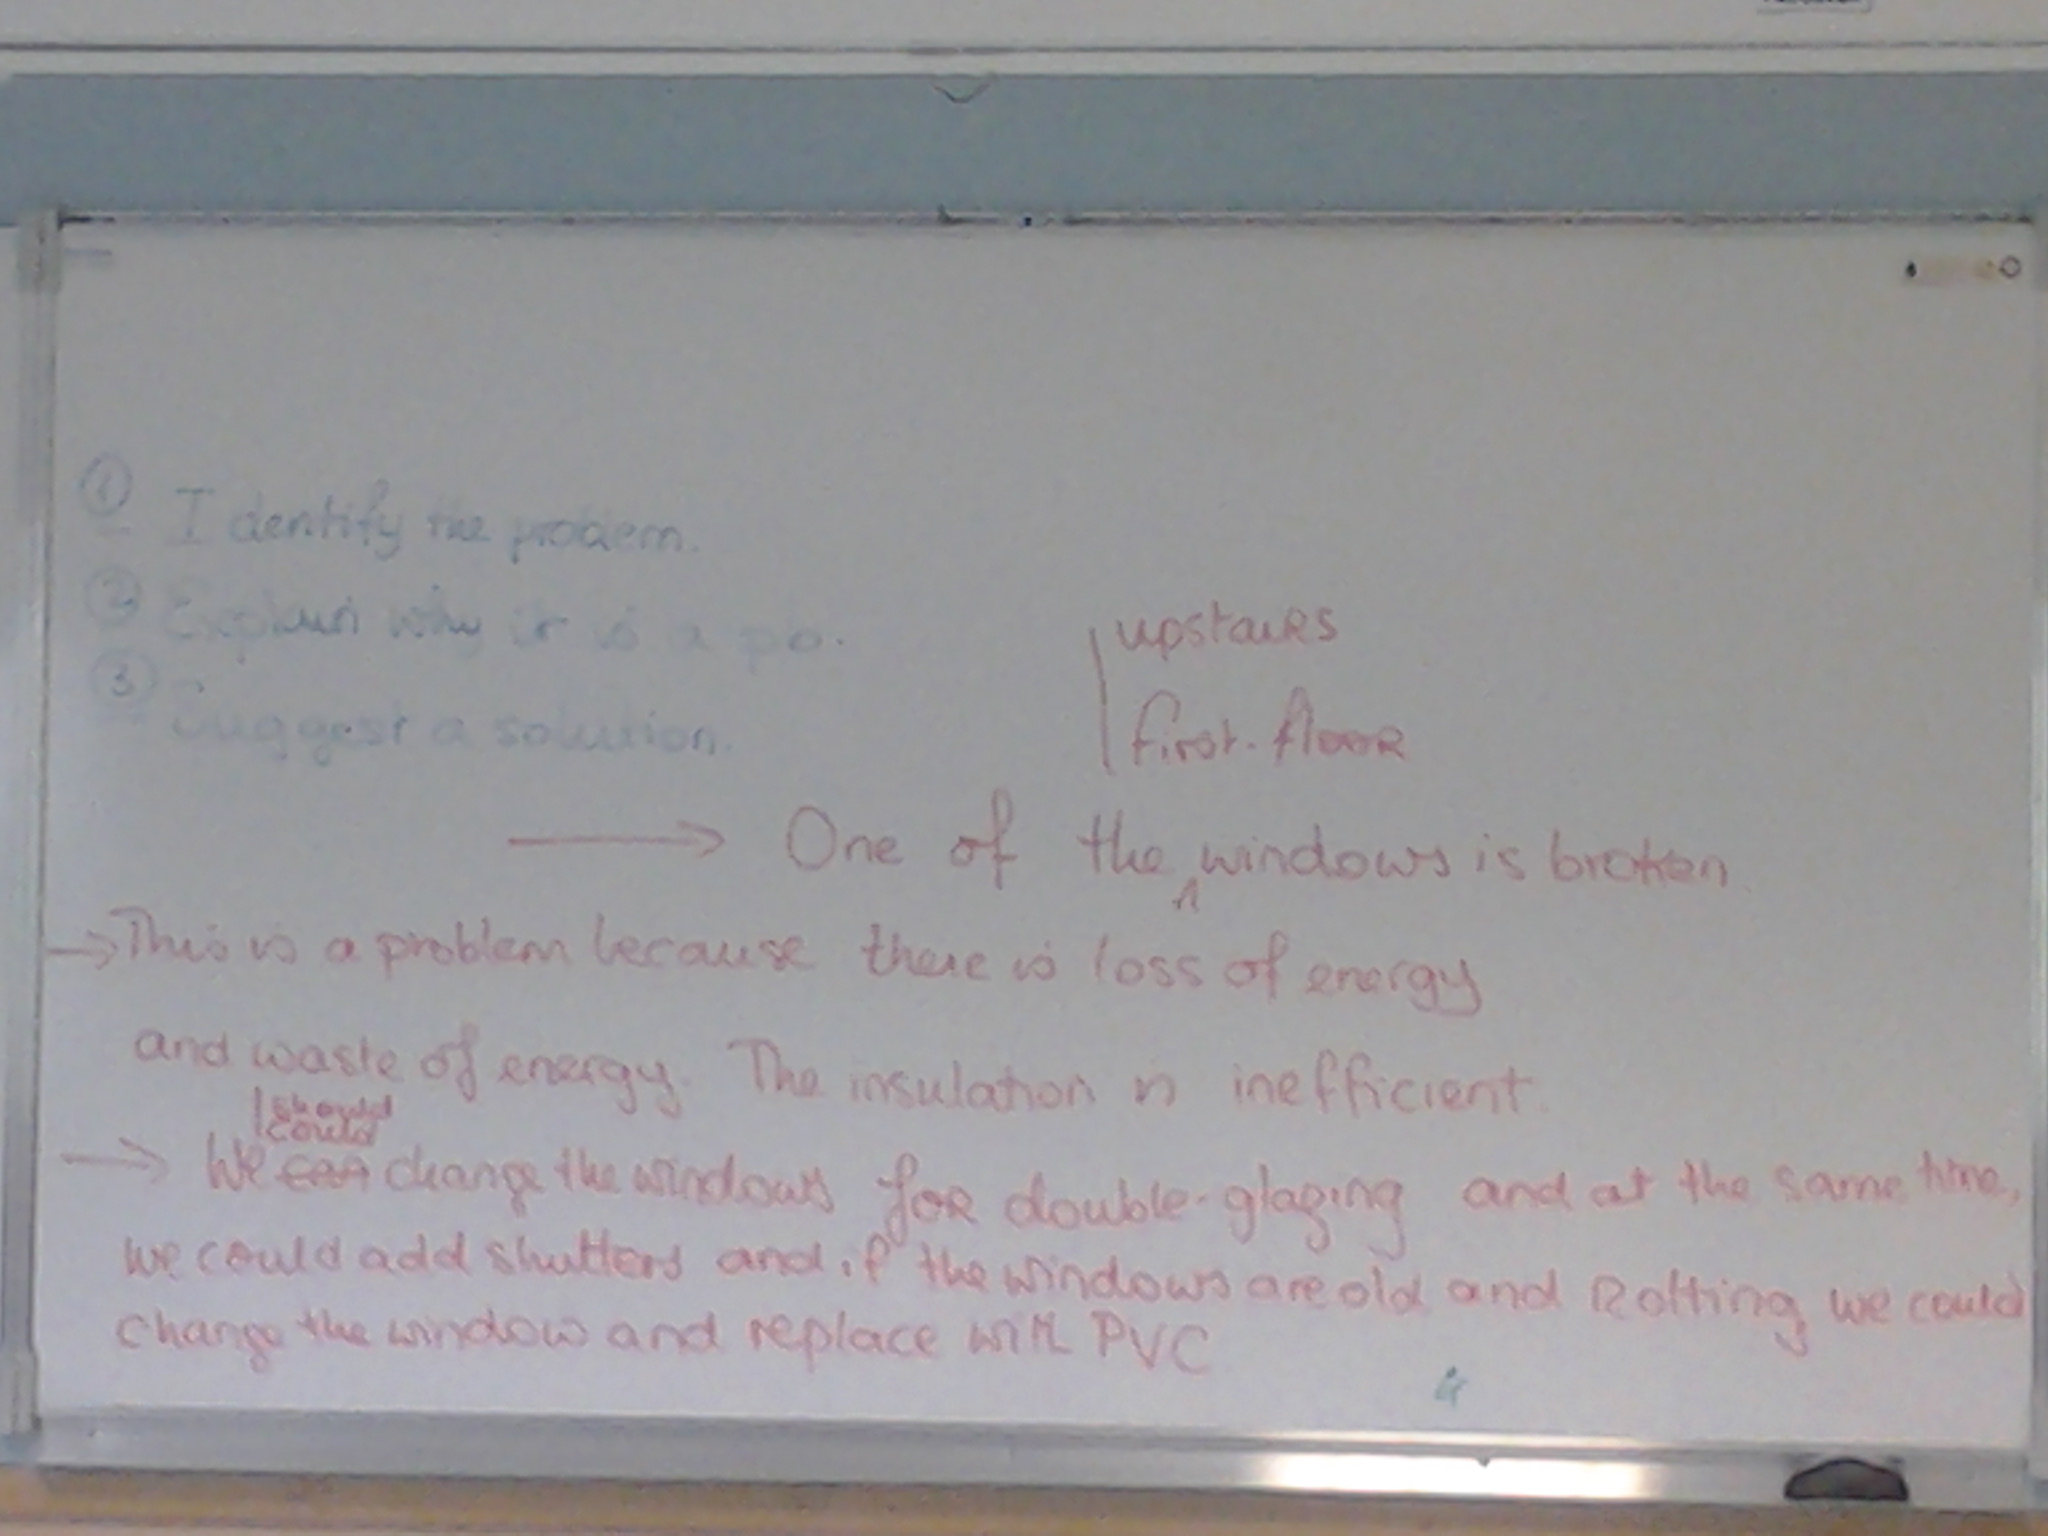 ① Identify the problem.
② Explain why it is a pb.
③ Suggest a solution.
upstairs
first-floor
→ One of the ^ windows is broken
→ This is a problem because there is loss of energy
and waste of energy. The insulation is inefficient.
should
could
→ We can change the windows for double-glazing and at the same time,
we could add shutters and if the windows are old and rotting we could
change the window and replace with PVC